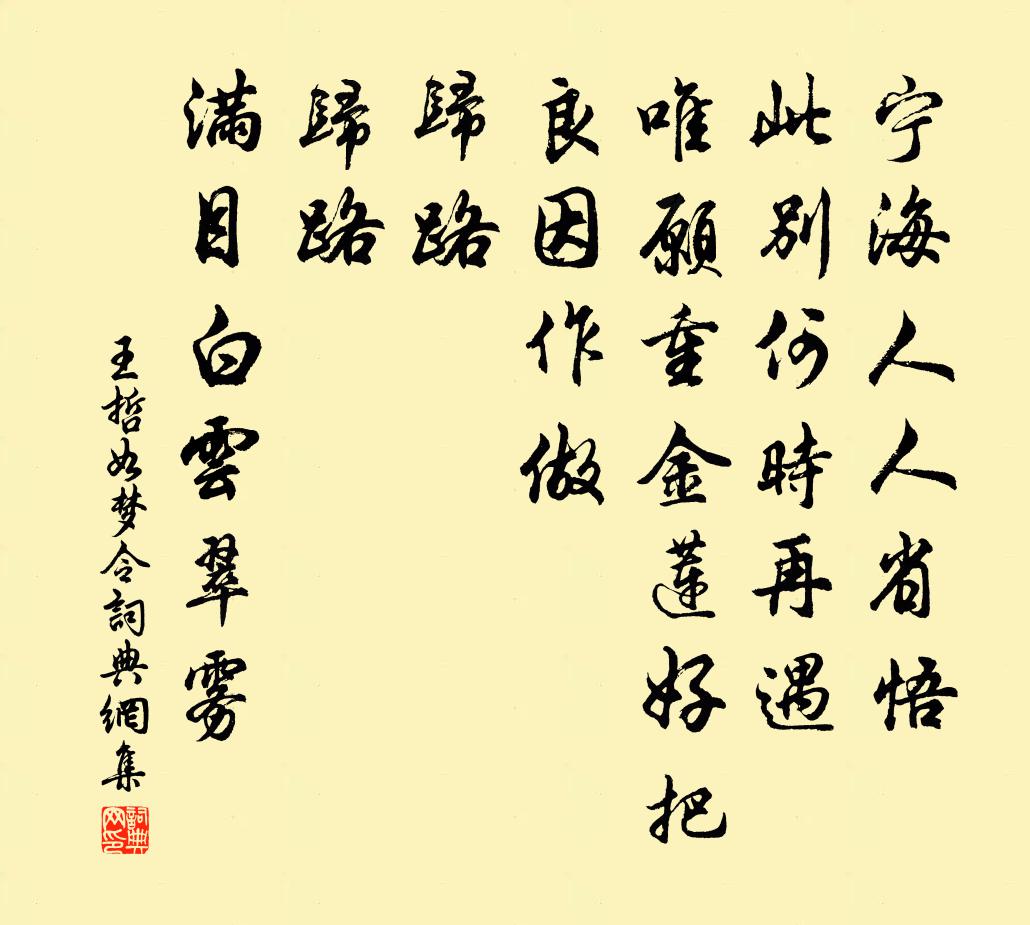 宁海人人省悟
此别何時再遇
唯願重金蓮好把
良因作做
歸路
歸路
满目白雲翠雾
王哲如梦令詞典網集
詞典网印